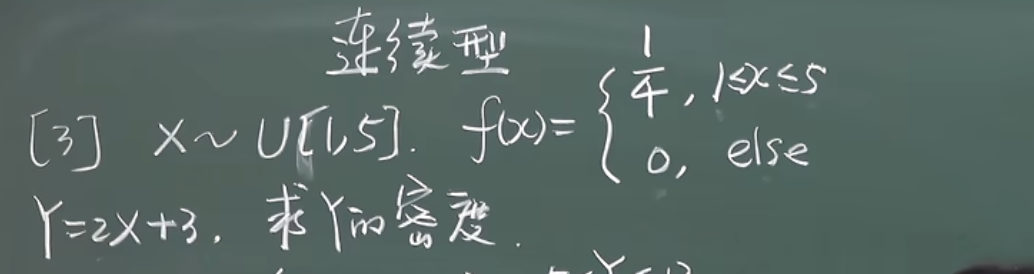 连续型
[3] X~U[1,5]. f(x)={ 1/4, 1≤x≤5
0, else
Y=2X+3. 求Y的密度.